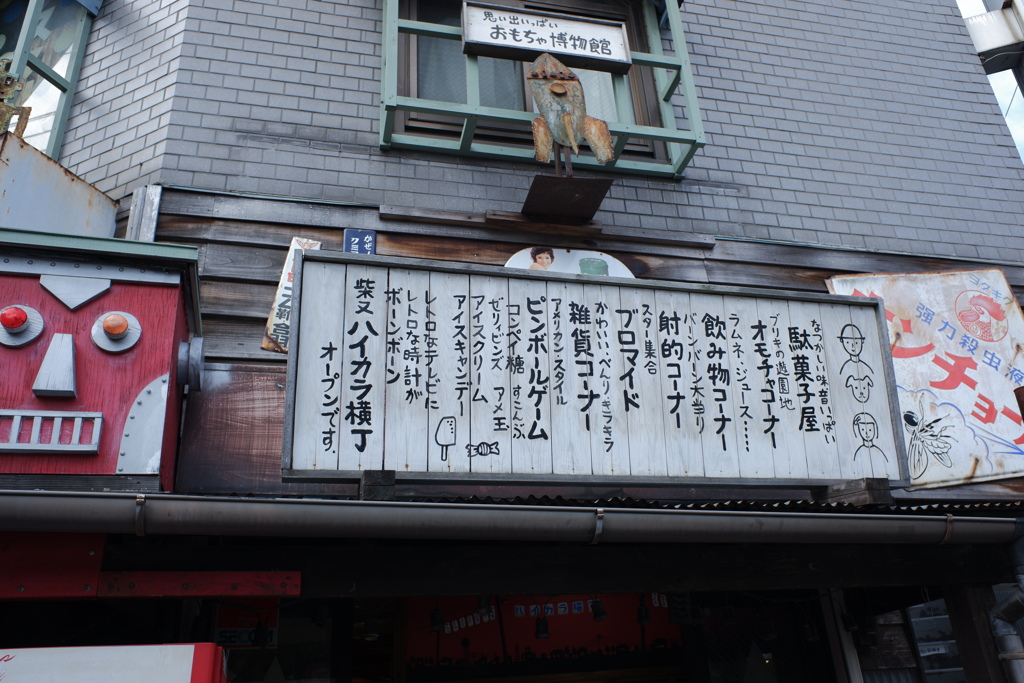 思い出いっぱい
おもちゃ博物館
なつかしい味言いっぱい
駄菓子屋
オモチャコーナー
ブリキの遊園地
ラムネ・ジュース・・・・
飲み物コーナー
バーンバーン大当り
射的コーナー
スター集合
ブロマイド
かわいいペんりキラキラ
雑貨コーナー
アメリカンスタイル
ピンボルゲーム
コンペイ糖 すこんぶ
ゼリィビンズ アメ玉
アイスクリーム
アイスキャンデー
レトロなテレビに
レトロな時計が
ボーンボーン
柴又ハイカラ横丁
オープンです。
強力殺虫液
キンチョール
SECOM